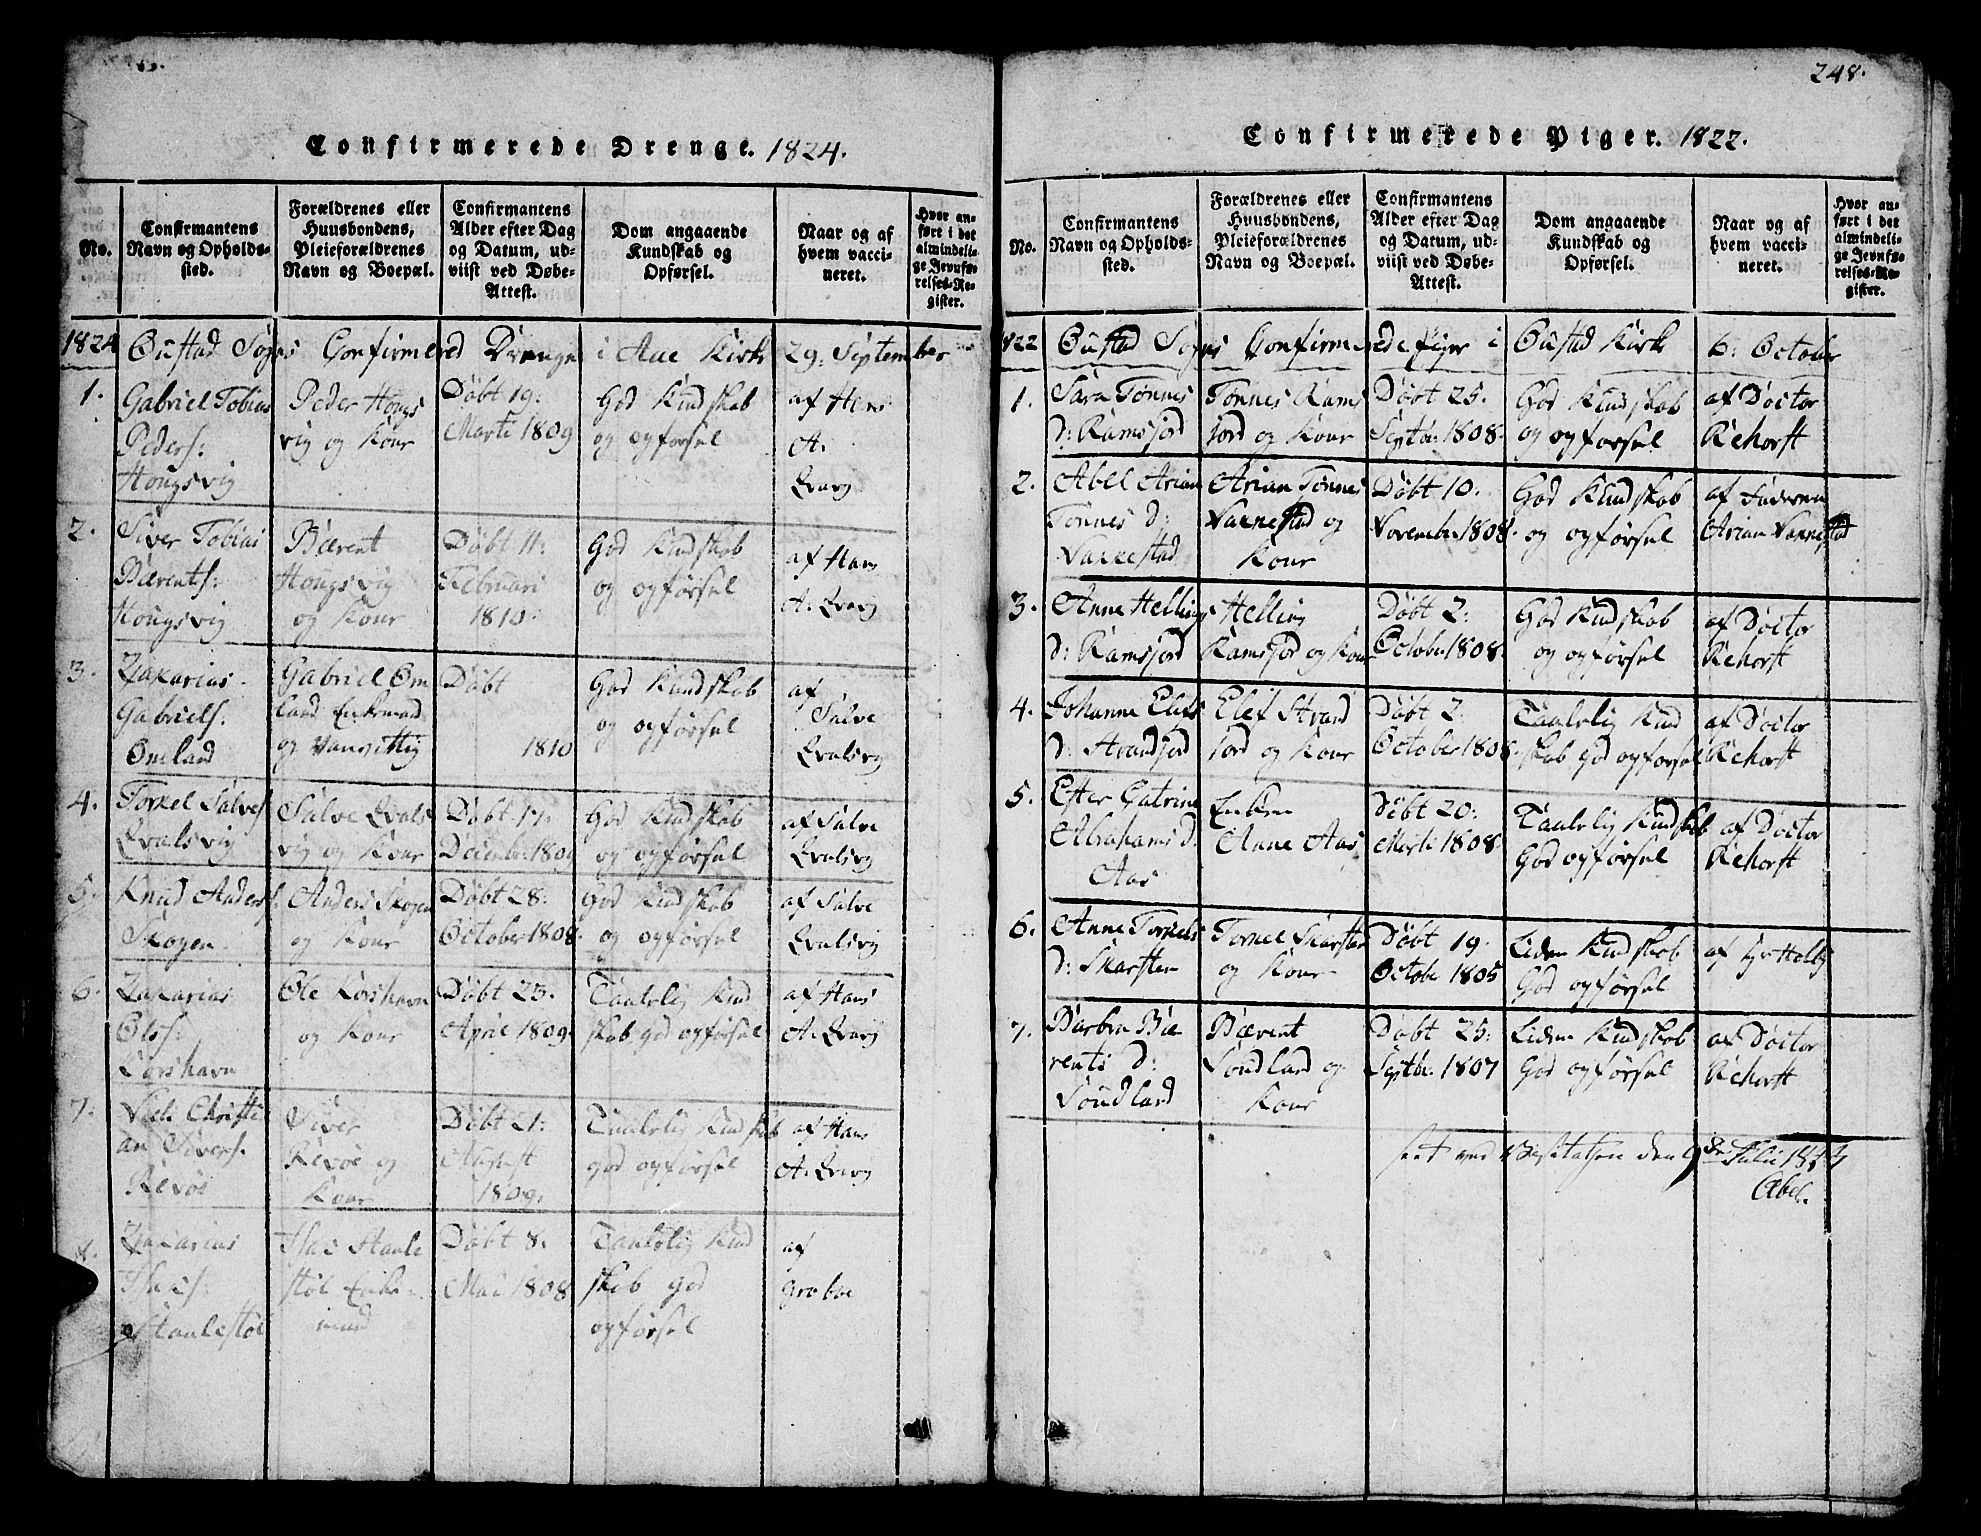 Confirmerede Drenge. 1824.
No.
Confirmantens
Navn og Opholds-
sted.
Forældrenes eller
Huusbondens,
Pleieforældrenes
Navn og Boepæl.
Confirmantens
Alder efter Dag
og Datum, ud-
viist ved Døbe-
Attest.
Dom angaaende
Kundskab og
Opførsel.
Naar og af
hvem vacci-
neret.
Hvor an-
ført i det
almindeli-
ge Jevnfø-
relses-Re-
gister.
1824 Oustad Sogns Confirmered Drenge i Aue Kirke 29: September
1.
Gabriel Tobias
Peders:
Hougsvig
Peder Hougs
vig og Kone
Døbt 19:
Marti 1809
God Kundskab
og opførsel
af Hans
A.
Qvavig
2.
Siver Tobias
Bærents:
Hougsvig
Bærent
Hougsvig
og Kone
Døbt 11:
Februari
1810.
God Kundskab
og opførsel
af Hans
A. Qvavig
3.
Zakarias
Gabriels:
Omland
Gabriel Om
land Enkemand
og Vanvittig
Døbt
1810
God Kundskab
og opførsel
af
Salve
Qvalsvig
4.
Torkel Salves
Qvalsvig
Salve Qvals
vig og Kone
Døbt 17:
December 1809
God Kundskab
og opførsel
af Salve
Qvalsvig
5.
Knud Anders:
Skogen
Anders Skogen
og Kone
Døbt 28:
October 1808.
God Kundskab
og opførsel
af Salve
Qvalsvig
6.
Zakarias
Ols:
Korshavn
Ole Korshavn
og Kone
Døbt 23.
April 1809.
Taalelig Kund
skab god opførsel
af Hans
A. Qvavig
7.
Niels Christi
an Sivers.
Revøe
Siver
Revøe og
Kone
Døbt 21:
August
1809.
Taalelig Kundskab
god opførsel
af Hans
A. Qvavig
8.
Zakarias
Staalestøl
Staale
støl Enke
mand
Døbt 8.
Mai 1808
Taalelig Kund
skab god
opførsel
af
248.
Confirmerede Piger. 1822.
No.
Confirmantens
Navn og Opholds-
sted.
Forældrenes eller
Huusbondens,
Pleieforældrenes
Navn og Boepæl.
Confirmantens
Alder efter Dag
og Datum, ud-
viist ved Døbe-
Attest.
Dom angaaende
Kundskab og
Opførsel.
Naar og af
hvem vacci-
neret.
Hvor an-
ført i det
almindeli-
ge Jevnfø-
relses-Re-
gister.
1822 Oustad Sogns Confirmerede piger i Oustad Kirke 6: October
1.
Sara Tønnes
d: Ramsjord
Tønnes Rams
jord og Kone
Døbt 25.
Septbr. 1808.
God Kundskab
og opførsel
af Doctor
Rehorst
2.
Abel Arian
Tønnes d:
Varnestad
Arian Tønnes
Varnestad og
Kone
Døbt 10:
November 1808.
God Kundskab
og opførsel
af Faderen
Arian Varnestad
3.
Anne Hellings
d: Ramsjord
Helling
Ramsjord og Kone
Døbt 2:
October 1808.
God Kundskab
og opførsel
af Doctor
Rehorst
4.
Johanne Elefs
d: Strandjord
Elef Strand
jord og Kone
Døbt 2:
October 1808.
Taalelig Kund
skab God opførsel
af Doctor
Rehorst
5.
Ester Catrine
Abrahams d:
Aas
Enken
Anne Aas
Døbt 20:
Marti 1808
Taalelig Kundskab
God opførsel
af Doctor
Rehorst
6.
Anne Torkels
d: Skarsten
Torkel Skarsten
og Kone
Døbt 19.
October 1805
Liden Kundskab
God opførsel
af
7.
Barbra Bæ
rents d:
Soudland
Bærent
Soudland og
Kone
Døbt 25:
Septbr. 1807
Liden Kundskab
God opførsel
af Doctor
Rehorst
seet ved Visitatsen den 9de Julii